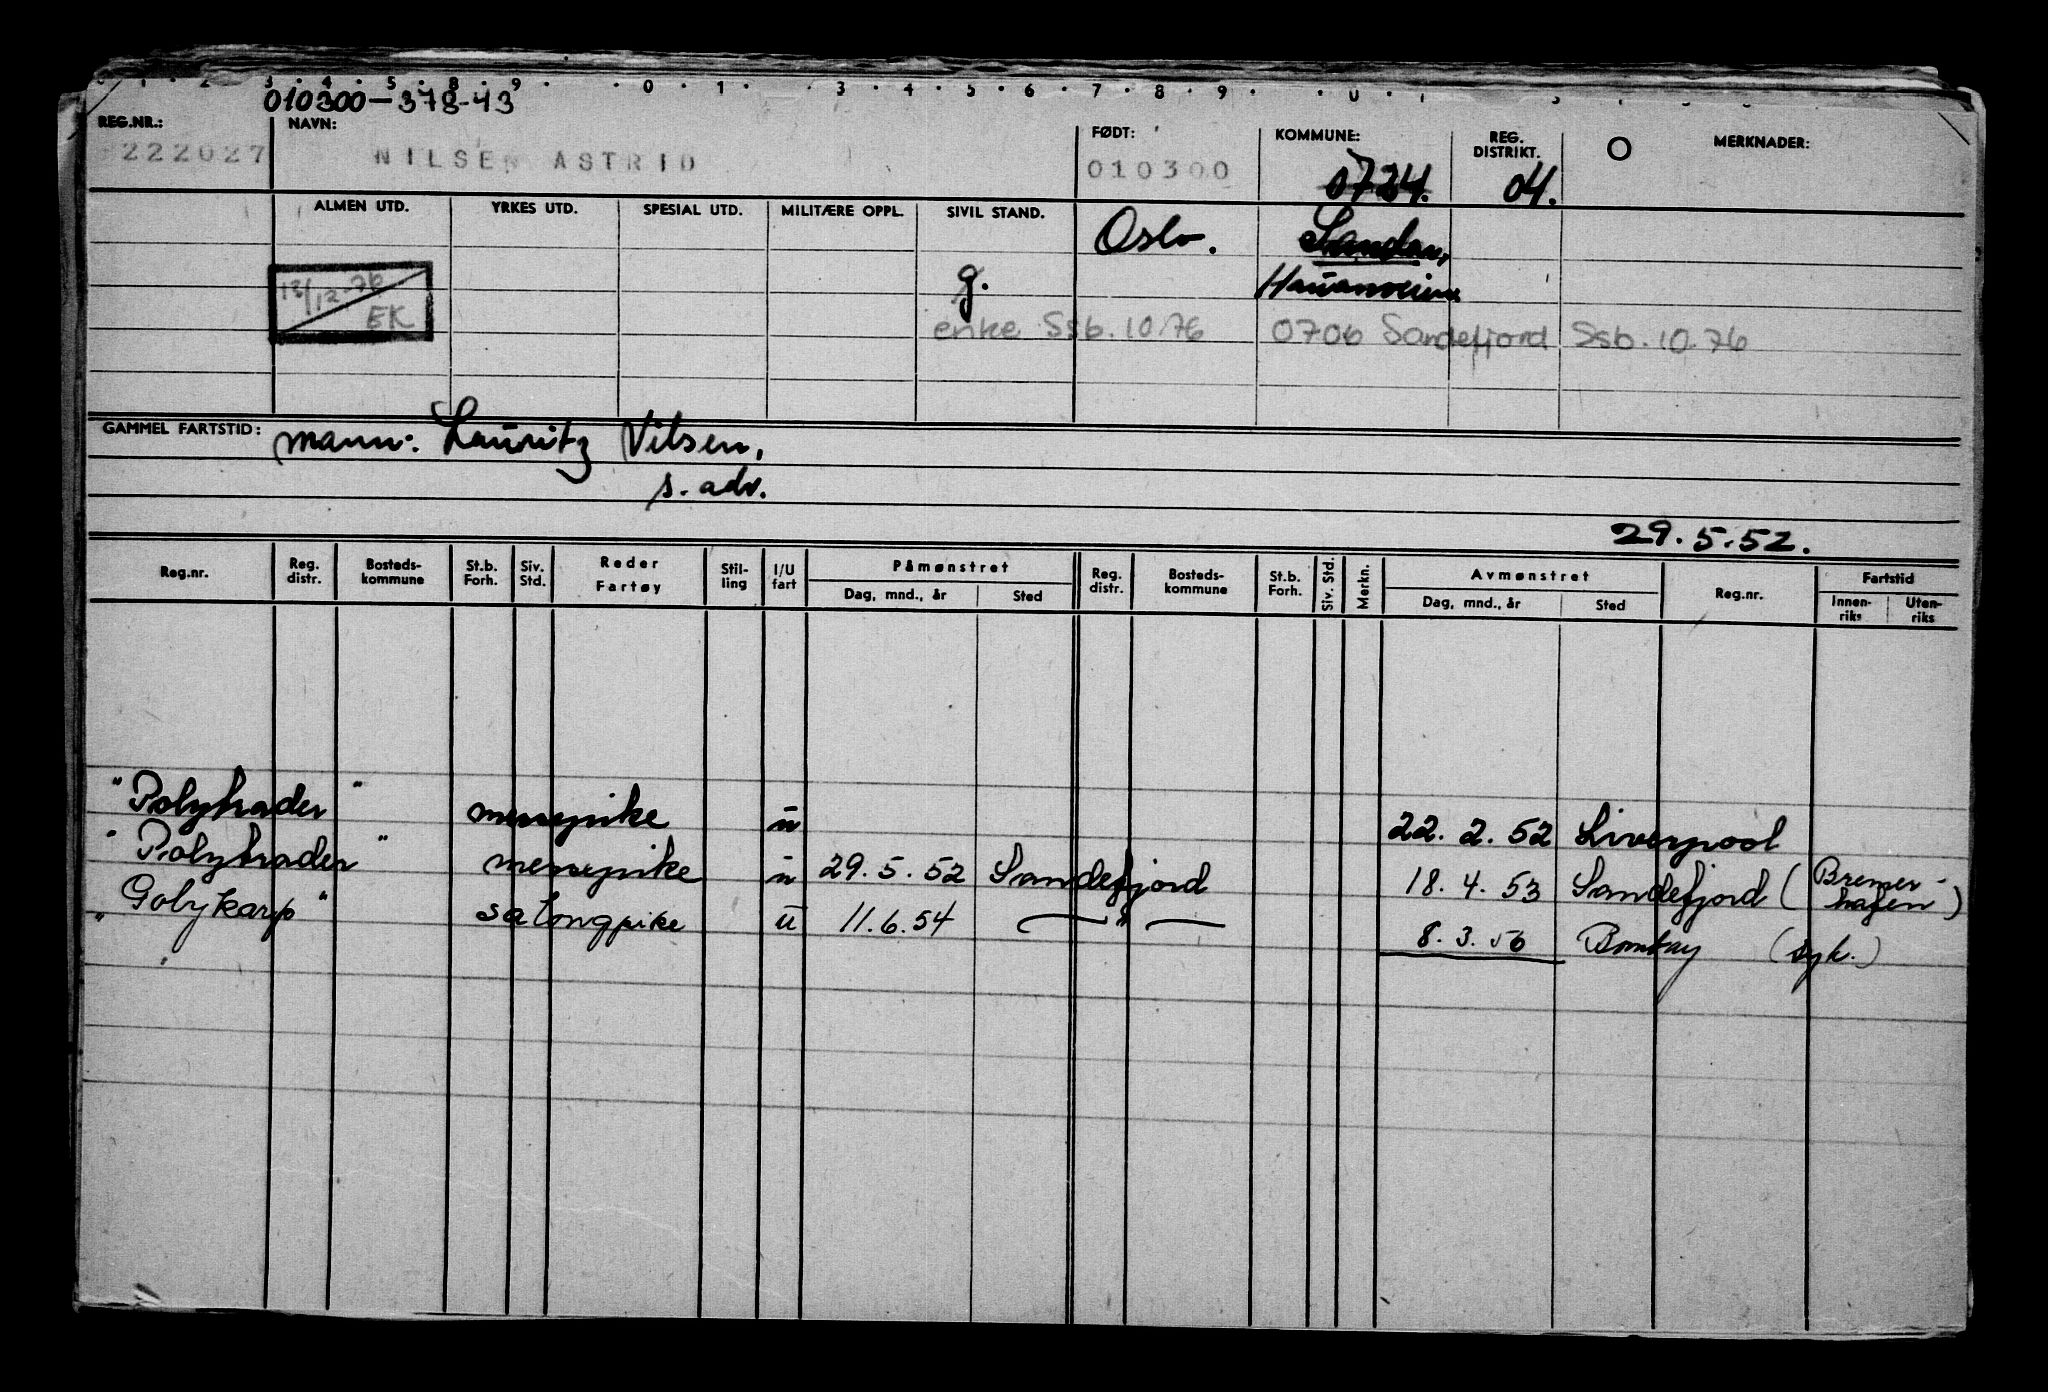 3 . 4 . 5 . 8 . 9 . . 0 . 1 . 3 . 4 . 5 . 6 . 7 . 8 . 9 .
010300-378-43
REG.NR.: NAVN: FØDT: KOMMUNE: REG. DISTRIKT. MERKNADER:
222027 NILSEN ASTRID 010300 0724. 04.
ALMEN UTD. YRKES UTD. SPESIAL UTD. MILITÆRE OPPL. SIVIL STAND. Oslo. Sandar,
13/12-76 EK g.
enke Ssb. 10.76 0706 Sandefjord Ssb. 10.76
GAMMEL FARTSTID: mann: Lauritz Nilsen,
s. adr.
29.5.52.
Reg.nr. Reg. distr. Bosteds-kommune St.b. Forh. Siv. Std. Reder Fartøy Stil-ling I/U fart Påmønstret Dag, mnd., år Sted Reg. distr. Bosteds-kommune St.b. Forh. Siv. Std. Merkn. Avmønstret Dag, mnd., år Sted Reg.nr. Fartstid Innen-riks Uten-riks
"Polytrader" messepike u 22.2.52 Liverpool
"Polytrader" messepike u 29.5.52 Sandefjord 18.4.53 Sandefjord (Bremer-hafen)
"Golykarp" salongpike u 11.6.54 — " — 8.3.56 Bombay (syk.)